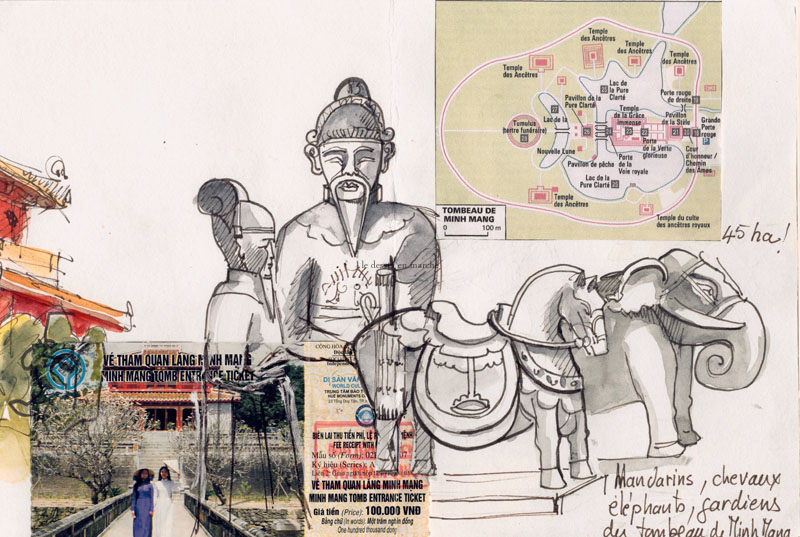 Temple
des Ancêtres
Temple
des Ancêtres
Temple
des Ancêtres
Temple
des Ancêtres
Lac de
la Pure
Clarté
Porte rouge
de droite
Pavillon de la
Pure Clarté
Lac de la
Temple
de la Grâce
Immense
Pavillon
de la Stèle
Grande
Porte
rouge
P
Tumulus
(tertre funéraire)
Nouvelle Lune
Porte
de la Vertu
glorieuse
Cour
d'honneur /
Chemin
des Âmes
Pavillon de pêche
Porte
de la
Voie royale
Lac de la
Pure Clarté
Temple
des Ancêtres
Temple du culte
des ancêtres royaux
TOMBEAU DE
MINH MANG
0 100 m
45 ha!
le dessin en marche
VÉ THAM QUAN LĂNG MINH MẠNG
MINH MANG TOMB ENTRANCE TICKET
CỘNG HÒA
DI SẢN VĂN
WORLD CUL
TRUNG TÂM BẢO T
HUE MONUMENTS C
BIÊN LAI THU TIỀN PHÍ, LỆ
FEE RECEIPT WITH
Mẫu số (Form): 02
Ký hiệu (Series): A
VÉ THAM QUAN LĂNG MINH MẠNG
MINH MANG TOMB ENTRANCE TICKET
Giá tiền (Price): 100.000 VNĐ
Bằng chữ (In words): Một trăm nghìn đồng
One hundred thousand dong
Mandarins, chevaux
éléphants, gardiens
du tombeau de Minh Mang